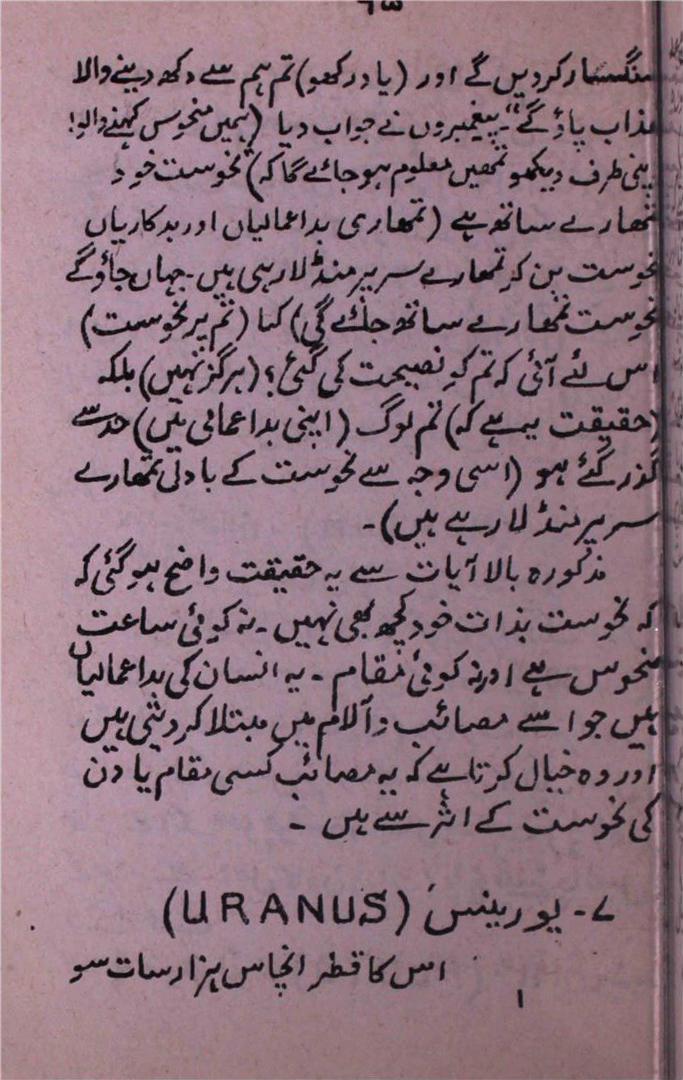 ٦٥
سنگسار کردیں گے اور (یاد رکھو) تم ہم سے دکھ دینے والا
عذاب پاؤ گے“۔ پیغمبروں نے جواب دیا (ہمیں منحوس کہنے والو!
اپنی طرف دیکھو تمھیں معلوم ہو جائے گا کہ) نحوست خود
تمھارے ساتھ ہے (تمھاری بداعمالیاں اور بدکاریاں
نحوست بن کر تمھارے سر پر منڈلا رہی ہیں۔ جہاں جاؤ گے
نحوست تمھارے ساتھ جائے گی) کیا (تم پر نحوست)
اس لئے آئی کہ تم کو نصیحت کی گئی؟ (ہرگز نہیں) بلکہ
(حقیقت یہ ہے کہ) تم لوگ (اپنی بداعمالی میں) حد سے
گذر گئے ہو (اسی وجہ سے نحوست کے بادل تمھارے
سر پر منڈلا رہے ہیں)۔
مذکورہ بالا آیات سے یہ حقیقت واضح ہو گئی کہ
کہ نحوست بذات خود کچھ بھی نہیں۔ نہ کوئی ساعت
منحوس ہے اور نہ کوئی مقام۔ یہ انسان کی بداعمالیاں
ہیں جو اسے مصائب و آلام میں مبتلا کر دیتی ہیں
اور وہ خیال کرتا ہے کہ یہ مصائب کسی مقام یا دن
کی نحوست کے اثر سے ہیں ۔
۷۔ یورینس (URANUS)
اس کا قطر انچاس ہزار سات سو
۱